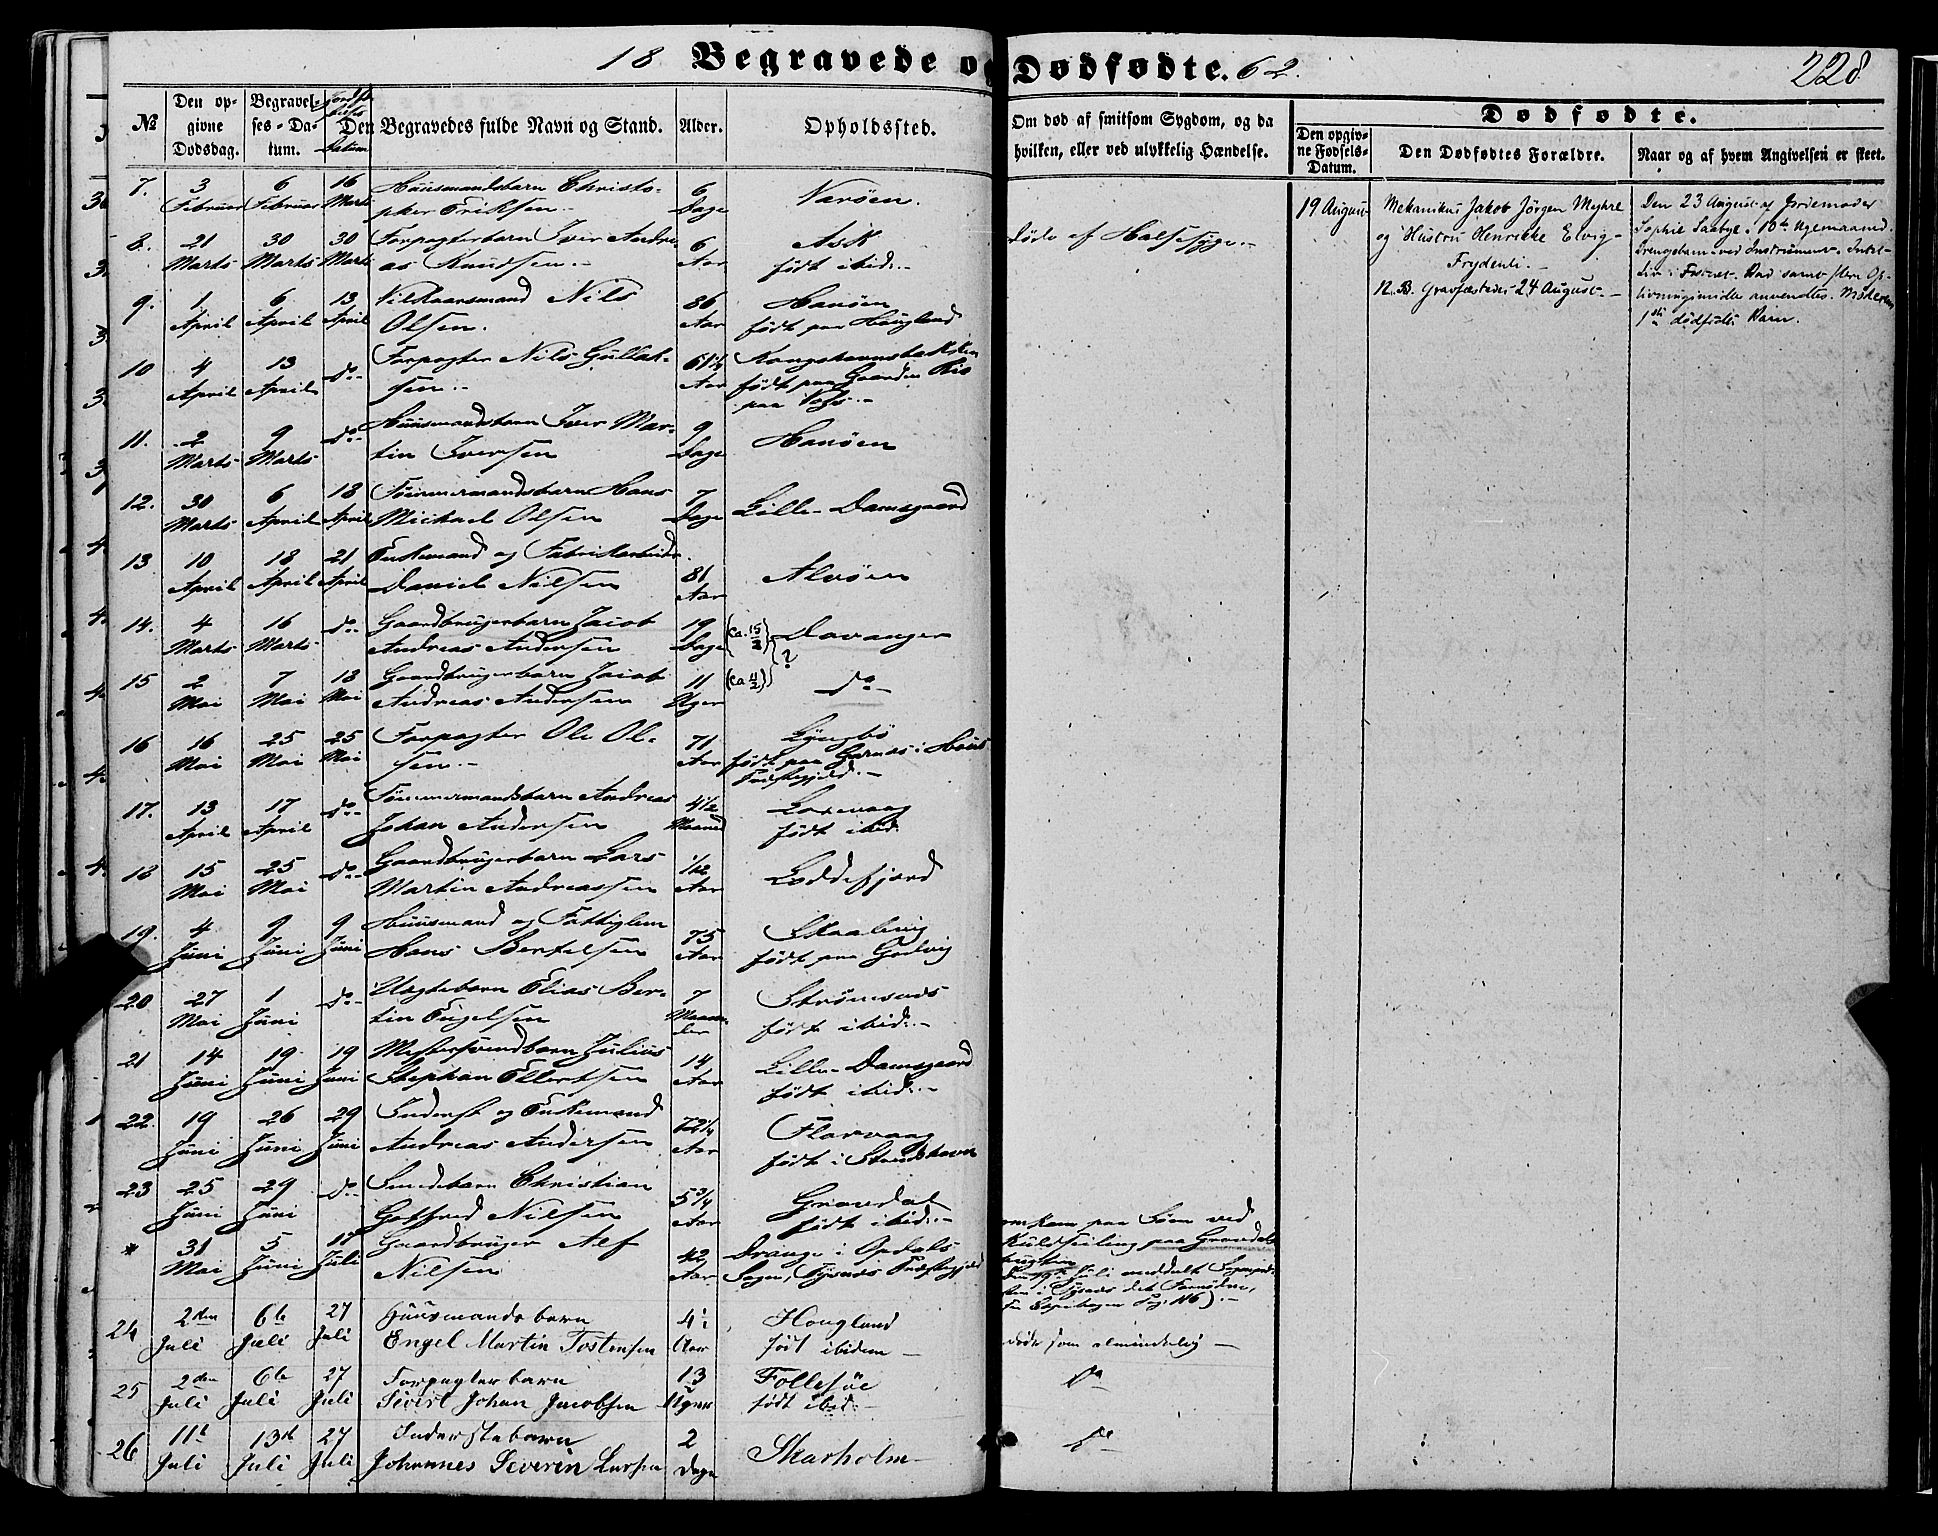 18 Begravede og Dødfødte. 62. 228
№ | Den opgivne Dodsdag. | Begravelses-Datum. | Jordfæstelses Datum | Den Begravedes fulde Navn og Stand. | Alder. | Opholdssted. | Om død af smitsom Sygdom, og da hvilken, eller ved ulykkelig Hændelse. | Dødfødte. | Den opgivne Fødsels-Datum. | Den Dødfødtes Forældre. | Naar og af hvem Angivelsen er skeet.
7. 3 Februar 6 Februar 16 Marts Huusmandsbarn Christo-
pher Eriksen.- 6 Dage
8. 21 Marts 30 Marts 30 Marts Forpagterbarn Iver Andre-
as Knudsen.- 6 Aar Ask
født ibid:- døde af Halsesyge.-
9. 1 April 6 April 13 April Vilkaarsmand Nils
Olsen. 86 Aar Hanøen
født paa Hougland
10 4 April 13 April do- Forpagter Nils Gullak-
sen.- 61 1/4 Aar
født paa Gaarden
paa Vos.-
11. 2 Marts 9 Marts do- Huusmandsbarn Iver Mar-
tin Iversen 9 Dage Hanöen
12. 30 Marts 6 April 18 April Tömmermandsbarn Hans
Michael Olsen 7 Dage Lille-Damsgaard
13 10 April 18 April 21 April Enkemand og Fabrikarbeider
Daniel Nilsen 81 Aar Alvøen
14. 4 Marts 16 Marts do- Gaardbrugerbarn Jacob
Andreas Andersen 19 Dage (ca. 15/2) Davanger
?
15 2 Mai 7 Mai 18 Mai Gaardbrugerbarn Jacob
Andreas Andersen 11 Uger do-
16 16 Mai 25 Mai 25 Mai Forpagter Ole Ol-
sen.- 71 Aar Lyngbö
født paa Garnæs i Hous
Præstegjeld.-
17. 13 April 17 April do- Tömmermandsbarn Andreas
Johan Andersen 4 1/2 Maaned
født ibid.
18 15 Mai 25 Mai do- Gaardbrugerbarn Lars
Martin Andreassen 1/12 Aar Loddefjord
19. 4 Juni 9 Juni 9 Juni Huusmand og Fattiglem
Hans Bertelsen 75 Aar Skaalevig
født paa Godvig
20 27 Mai 1 Juni do- Uægtebarn Elias Ber-
tin Engelsen 7 Maaneder Strømsnæs
født ibid:-
21 14 Juni 19 Juni 19 Juni Mestersvendbarn Julius
Stephan Ellertsen 14 Aar Lille-Damsgaard
født ibid:-
22. 19 Juni 26 Juni 29 Juni Inderst og Enkemand
Andreas Andersen 72 1/4 Aar Florvaag
født i Strudshavn
23 25 Juni 29 Juni do- Smedebarn Christian
Gotfred Nilsen 5 3/4 Aar Gravdal
født ibid:-
* 31 Mai 5 Juni 17 Juli Gaardbruger Alf
Nilsen 42 Aar Drange i Opdals
Sogn, Tysnæs Præstegjeld
omkom paa Søen ved
Kuldseiling paa Gravdals
bugten
24 2den Juli 6te Juli 27 Juli Huusmandsbarn
Engel Martin Tostensen Aar Hougland
født ibidem - døde som almindelig -
25 2den Juli 6te Juli 27 Juli Forpagterbarn
Sivert Johan Jacobsen 13 Uger Follesøe
født ibid:- do
26 11te Juli 13de Juli 27 Juli Inderstebarn
Johannes Severin Larsen 2 Dage Skarholm- do
19 August Mekanikus Jakob Jörgen Myhre
og Hustru Henrikke Elvig-
Frydenli.-
N.B. Gravfæstedes 24 August.-
Den 23 August af Jordemoder
Sophie Saabye. 10de Ugemaaned.
Drengebarn - ved Instrument.
livningsmidler anvendtes. Moderens
1ste dødfødte Barn.